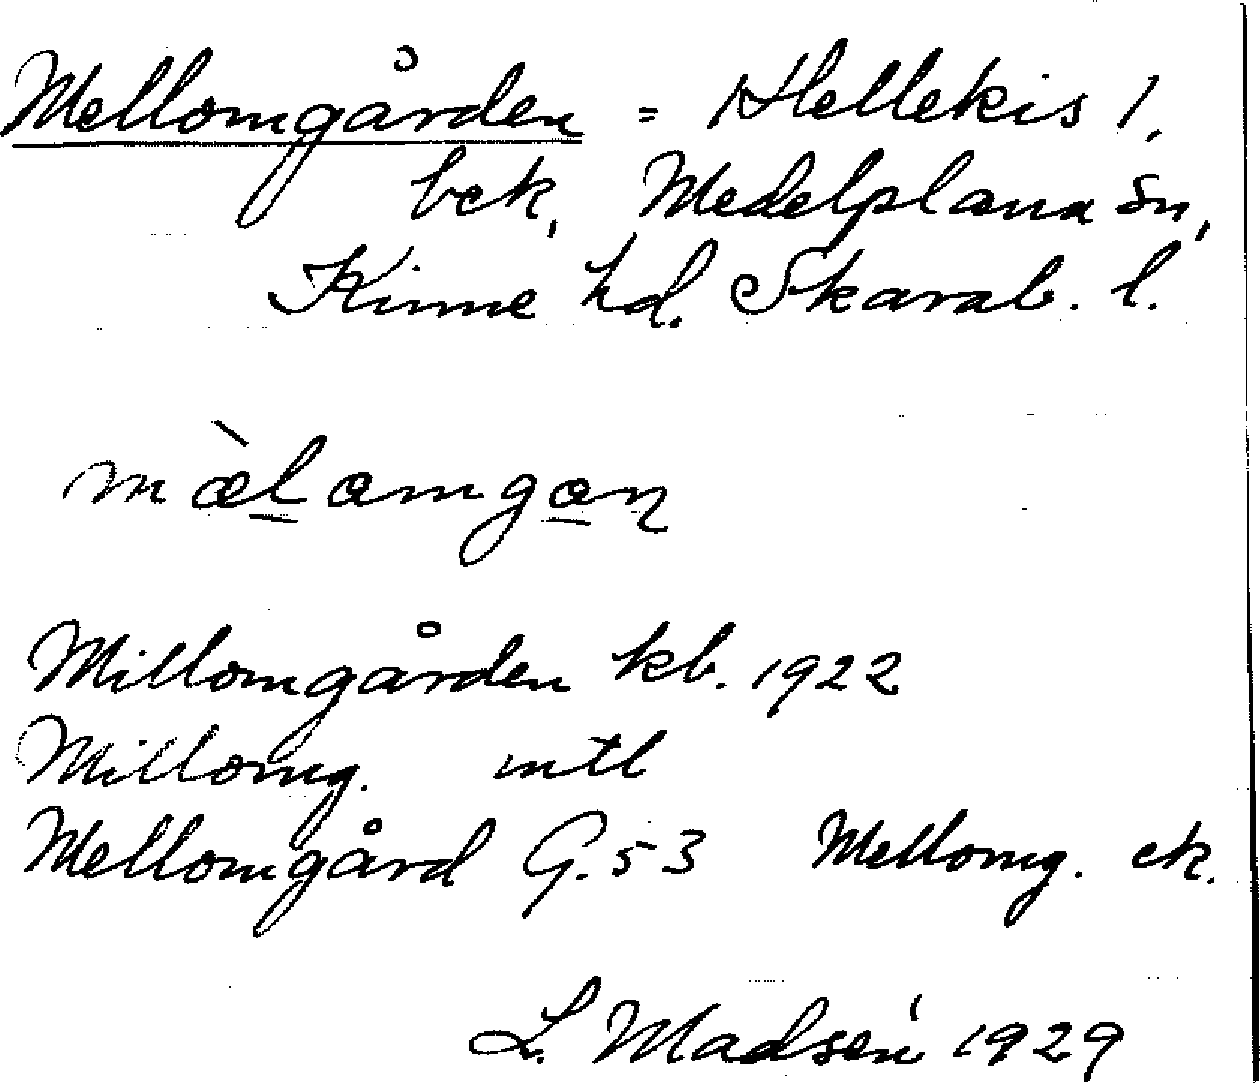 Mellomgården = Hellekis 1,
bek, Medelplana sn,
Kinne hd. Skarab. l.
mæ̀lamgaɳ
Millomgården kb. 1922
Millomg. mtl
Mellomgård G. 53 Mellomg. ek.
L. Madsén 1929